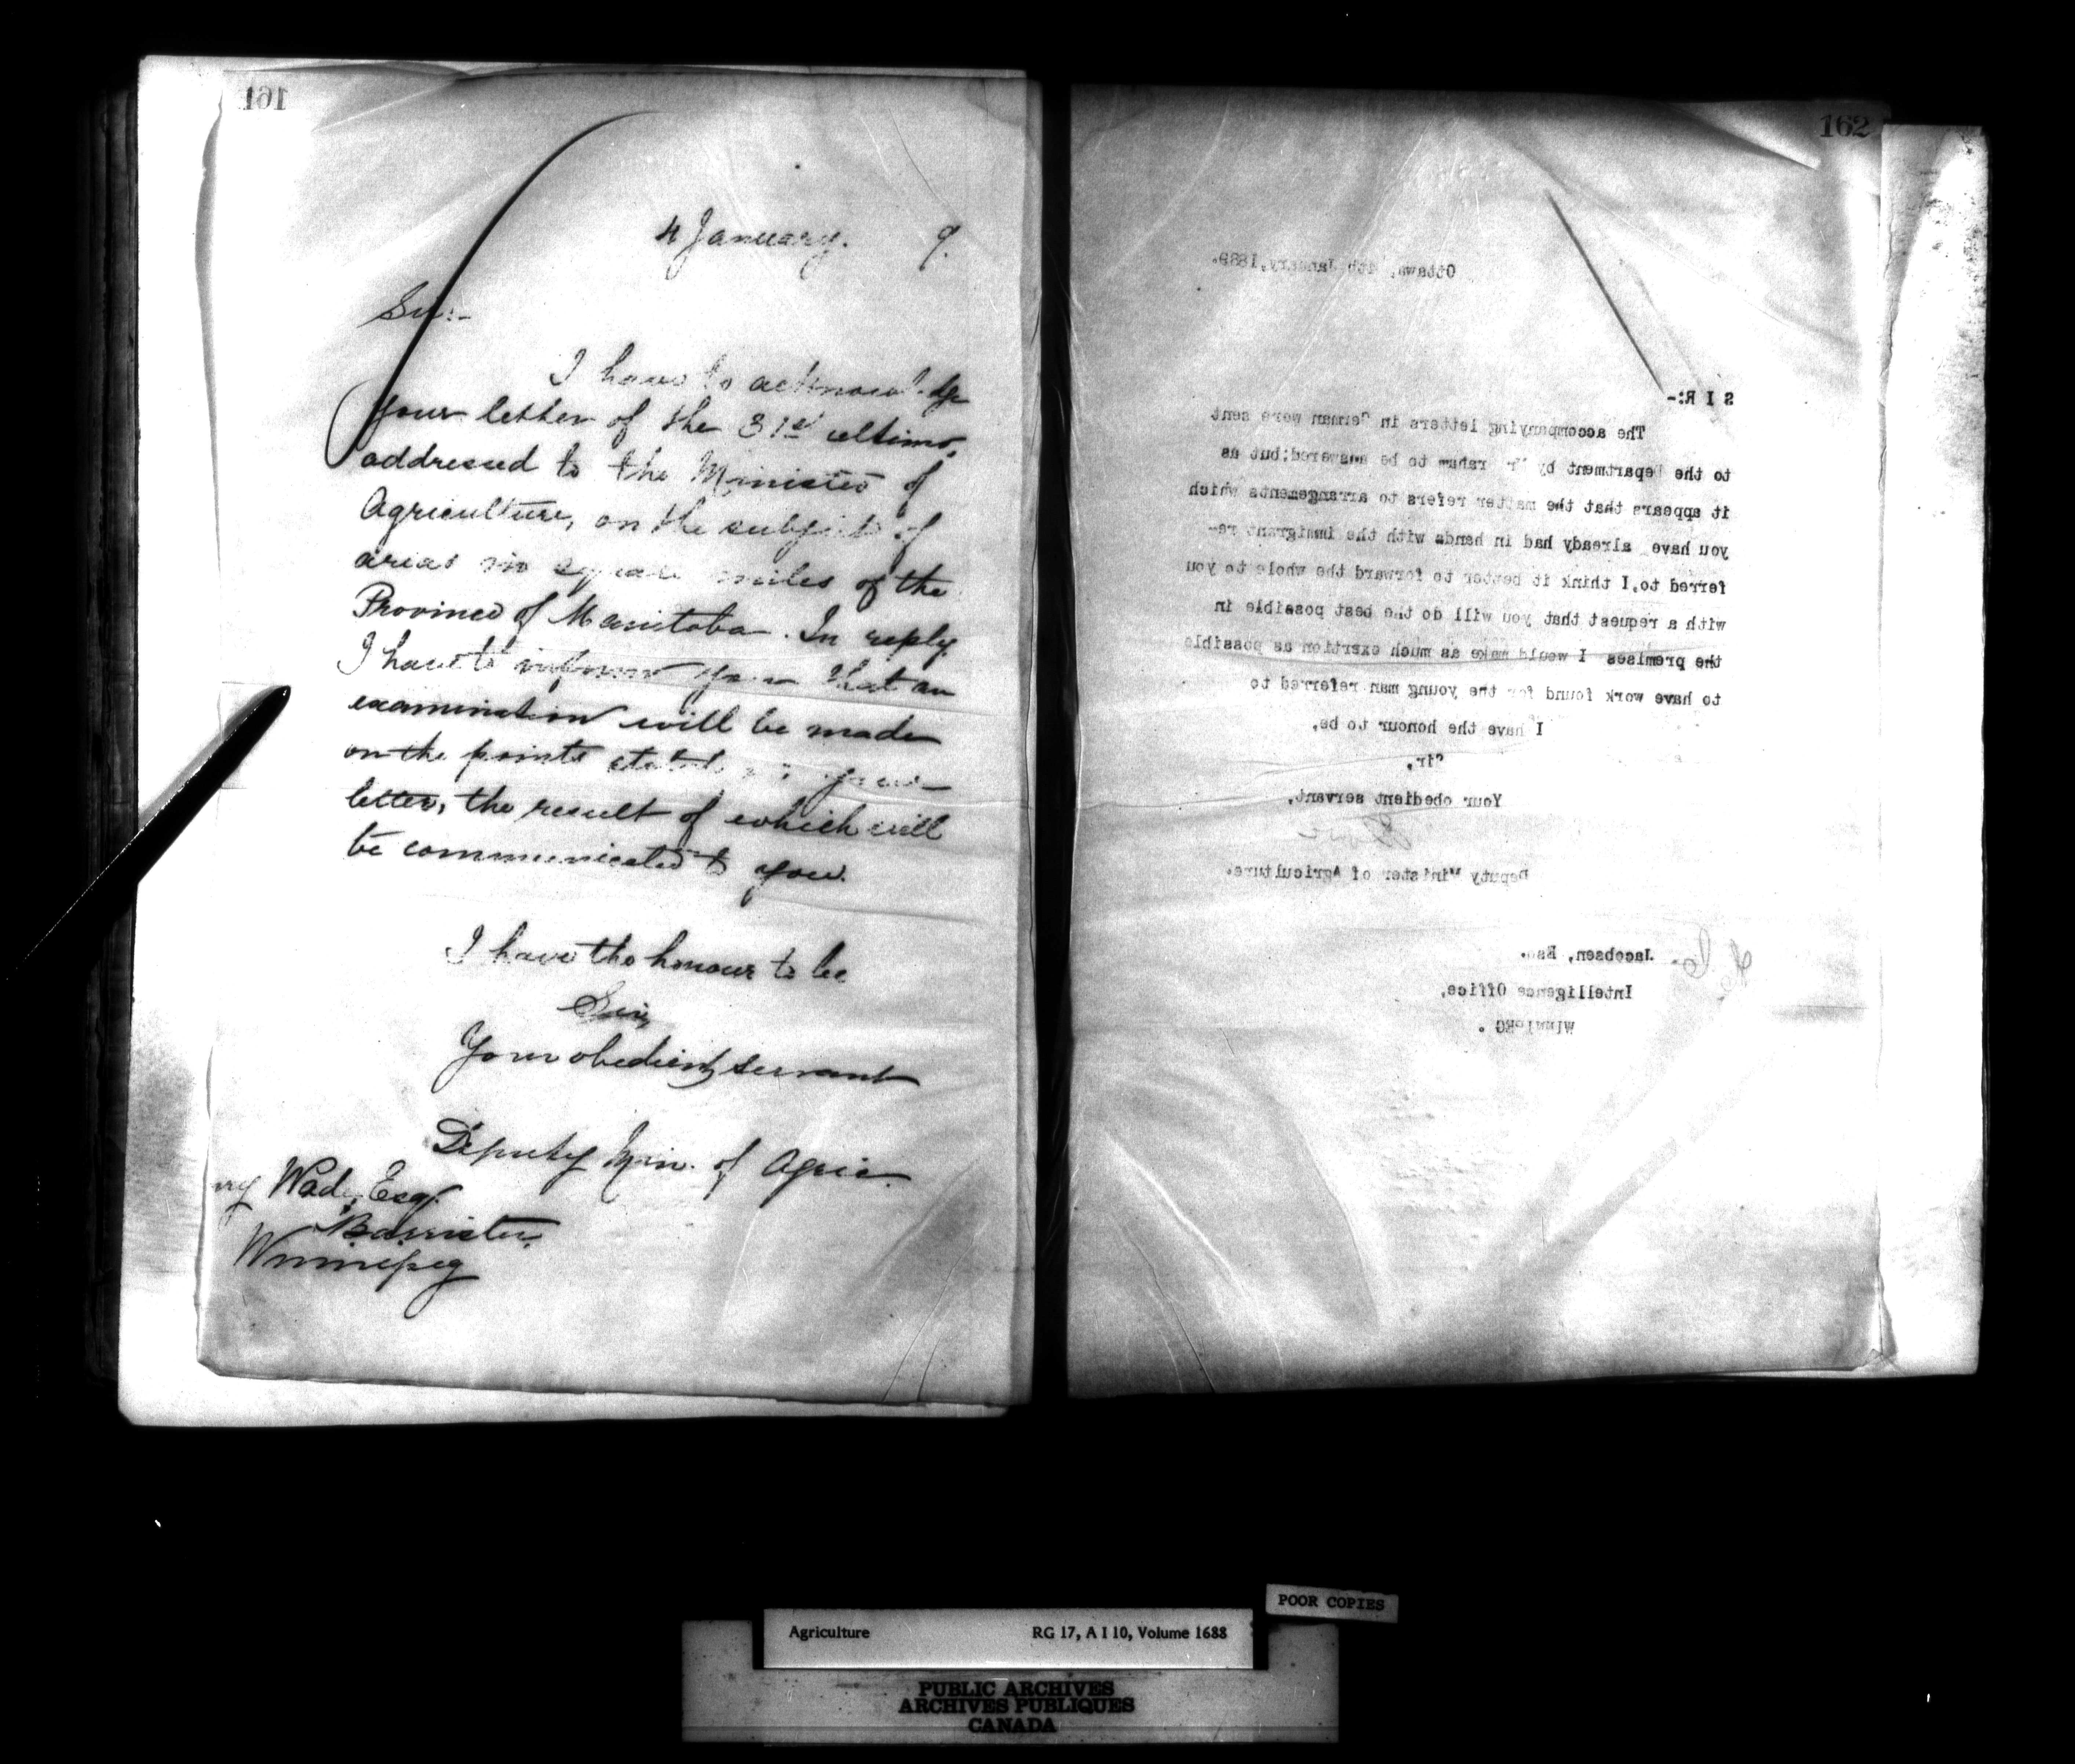 161
4 January. 9.
Sir:-
I have to acknowledge
your letter of the 31st ultimo,
addressed to the Minister of
Agriculture, on the subject of
areas in square miles of the
Province of Manitoba. In reply
I have to inform you that an
examination will be made
on the points stated in your
letter, the result of which will
be communicated to you.
I have the honour to be
Sir,
Your obedient servant
Deputy Min. of Agric.
Wade, Esq.
Barrister,
Winnipeg
162
Ottawa, 4th January, 1889.
S I R:-
The accompanying letters in German were sent
to the Department by Mr to be answered; but as
it appears that the matter refers to arrangements which
you have already had in hands with the immigrant re-
ferred to, I think it better to forward the whole to you
with a request that you will do the best possible in
the premises I would make as much exertion as possible
to have work found for the young man referred to
I have the honour to be,
Sir,
Your obedient servant,
Deputy Minister of Agriculture.
Jacobsen, Esq.
Intelligence Office,
WINNIPEG.
POOR COPIES
Agriculture RG 17, A I 10, Volume 1688
PUBLIC ARCHIVES
ARCHIVES PUBLIQUES
CANADA